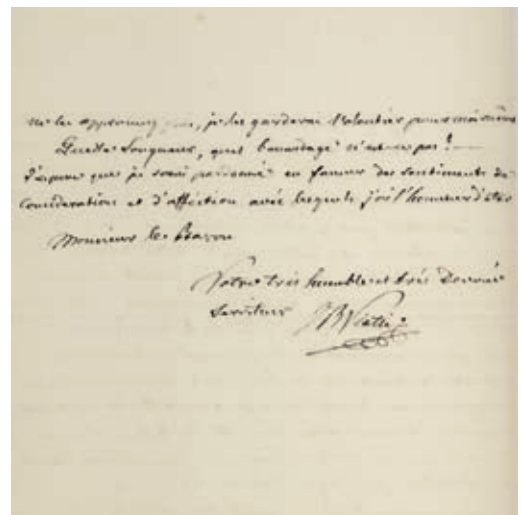 ne les approuvez pas, je les garderai volontier pour moi même
Quelle longueur, quel bavardage n'est-ce pas! —
J'espère que je serai pardonné en faveur des sentiments de
Considération et d'affection avec lesquels j'ai l'honneur d'être
Monsieur le Baron
Votre très humble et très Dévoué
Serviteur JBVietti